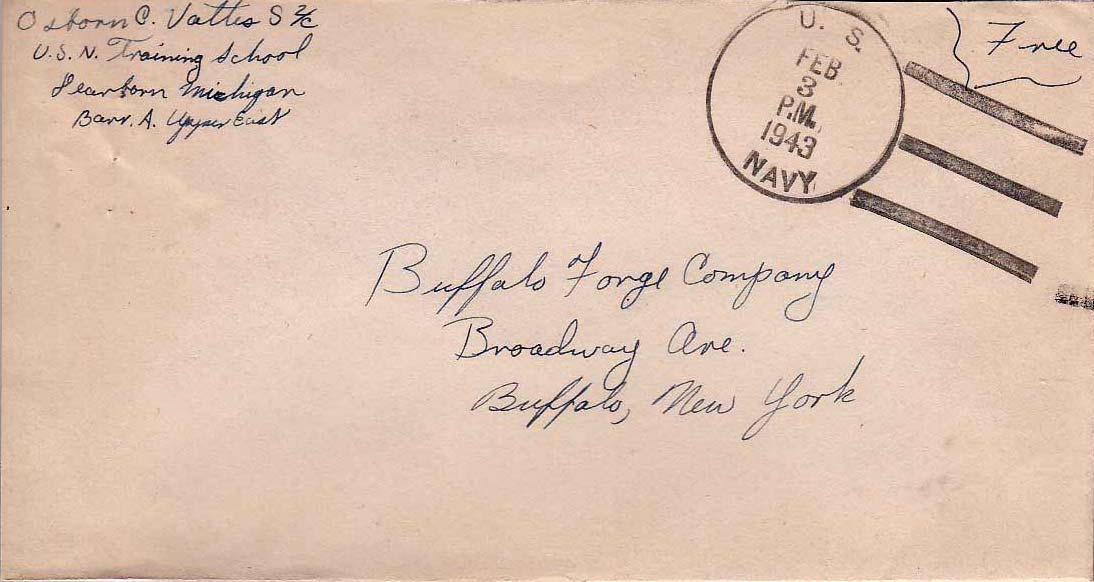 Osborn C. Vattes S 2/c
U.S.N. Training School
Dearborn Michigan
Barr. A. Upper East
U. S.
FEB.
3
P.M.
1943
NAVY
Free
Buffalo Forge Company
Broadway Ave.
Buffalo, New York